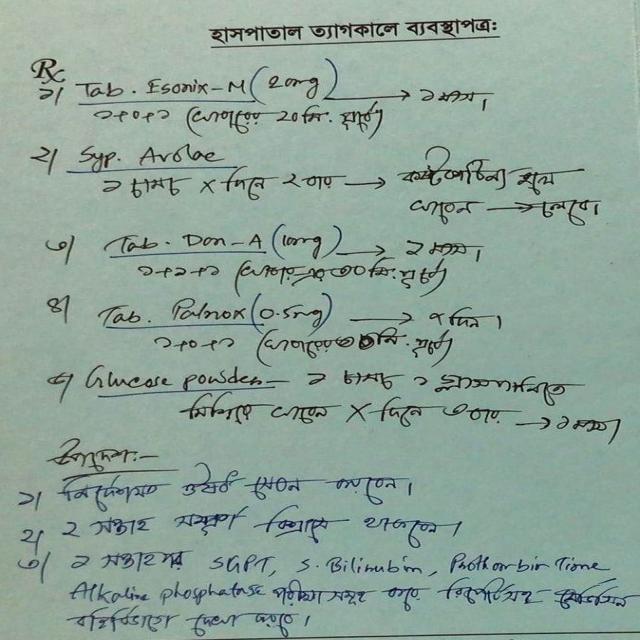 হাসপাতাল ত্যাগকালে ব্যবস্থাপত্রঃ
Rx
১। Tab. Esonix-M (20mg) → ১ মাস।
১+০+১ (খাওয়ার ২০ মি. পূর্বে)
২। Syp. Avolac
২ চামচ X দিনে ২ বার → কোষ্ঠকাঠিন্য হলে
খাবেন → চলবে।
৩। Tab. Don-A (10mg) → ১ মাস।
১+১+১ (খাওয়ার ৩০ মি. পূর্বে)
৪। Tab. Palnox (0.5mg) → ৫ দিন।
১+০+১ (খাওয়ার ৩০ মি. পূর্বে)
৫। Glucose powder - ২ চামচ ১ গ্লাস পানিতে
মিশিয়ে খাবেন X দিনে ৩ বার → ১ মাস।
উপদেশঃ-
১। নির্দেশমত ঔষধ সেবন করবেন।
২। ২ সপ্তাহ সম্পূর্ণ বিশ্রামে থাকবেন।
৩। ২ সপ্তাহ পর SGPT, S. Bilirubin, Prothombin Time
Alkaline phosphatase পরীক্ষা সমূহ করে রিপোর্টসহ মেডিসিন
বহির্বিভাগে দেখা করবে।